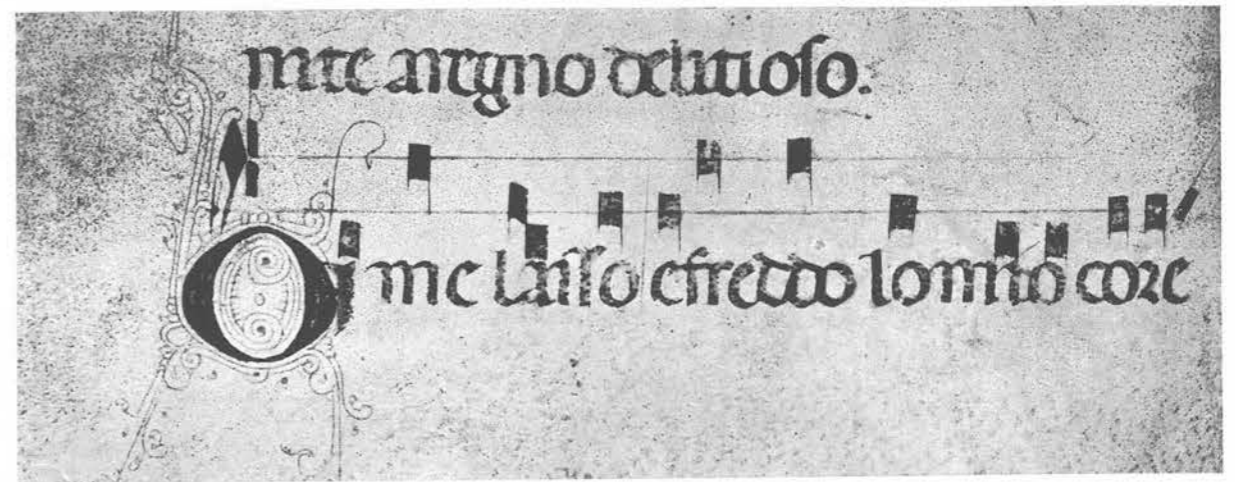 inte airegno delitioso.
Oi me lasso efreddo lo mio core